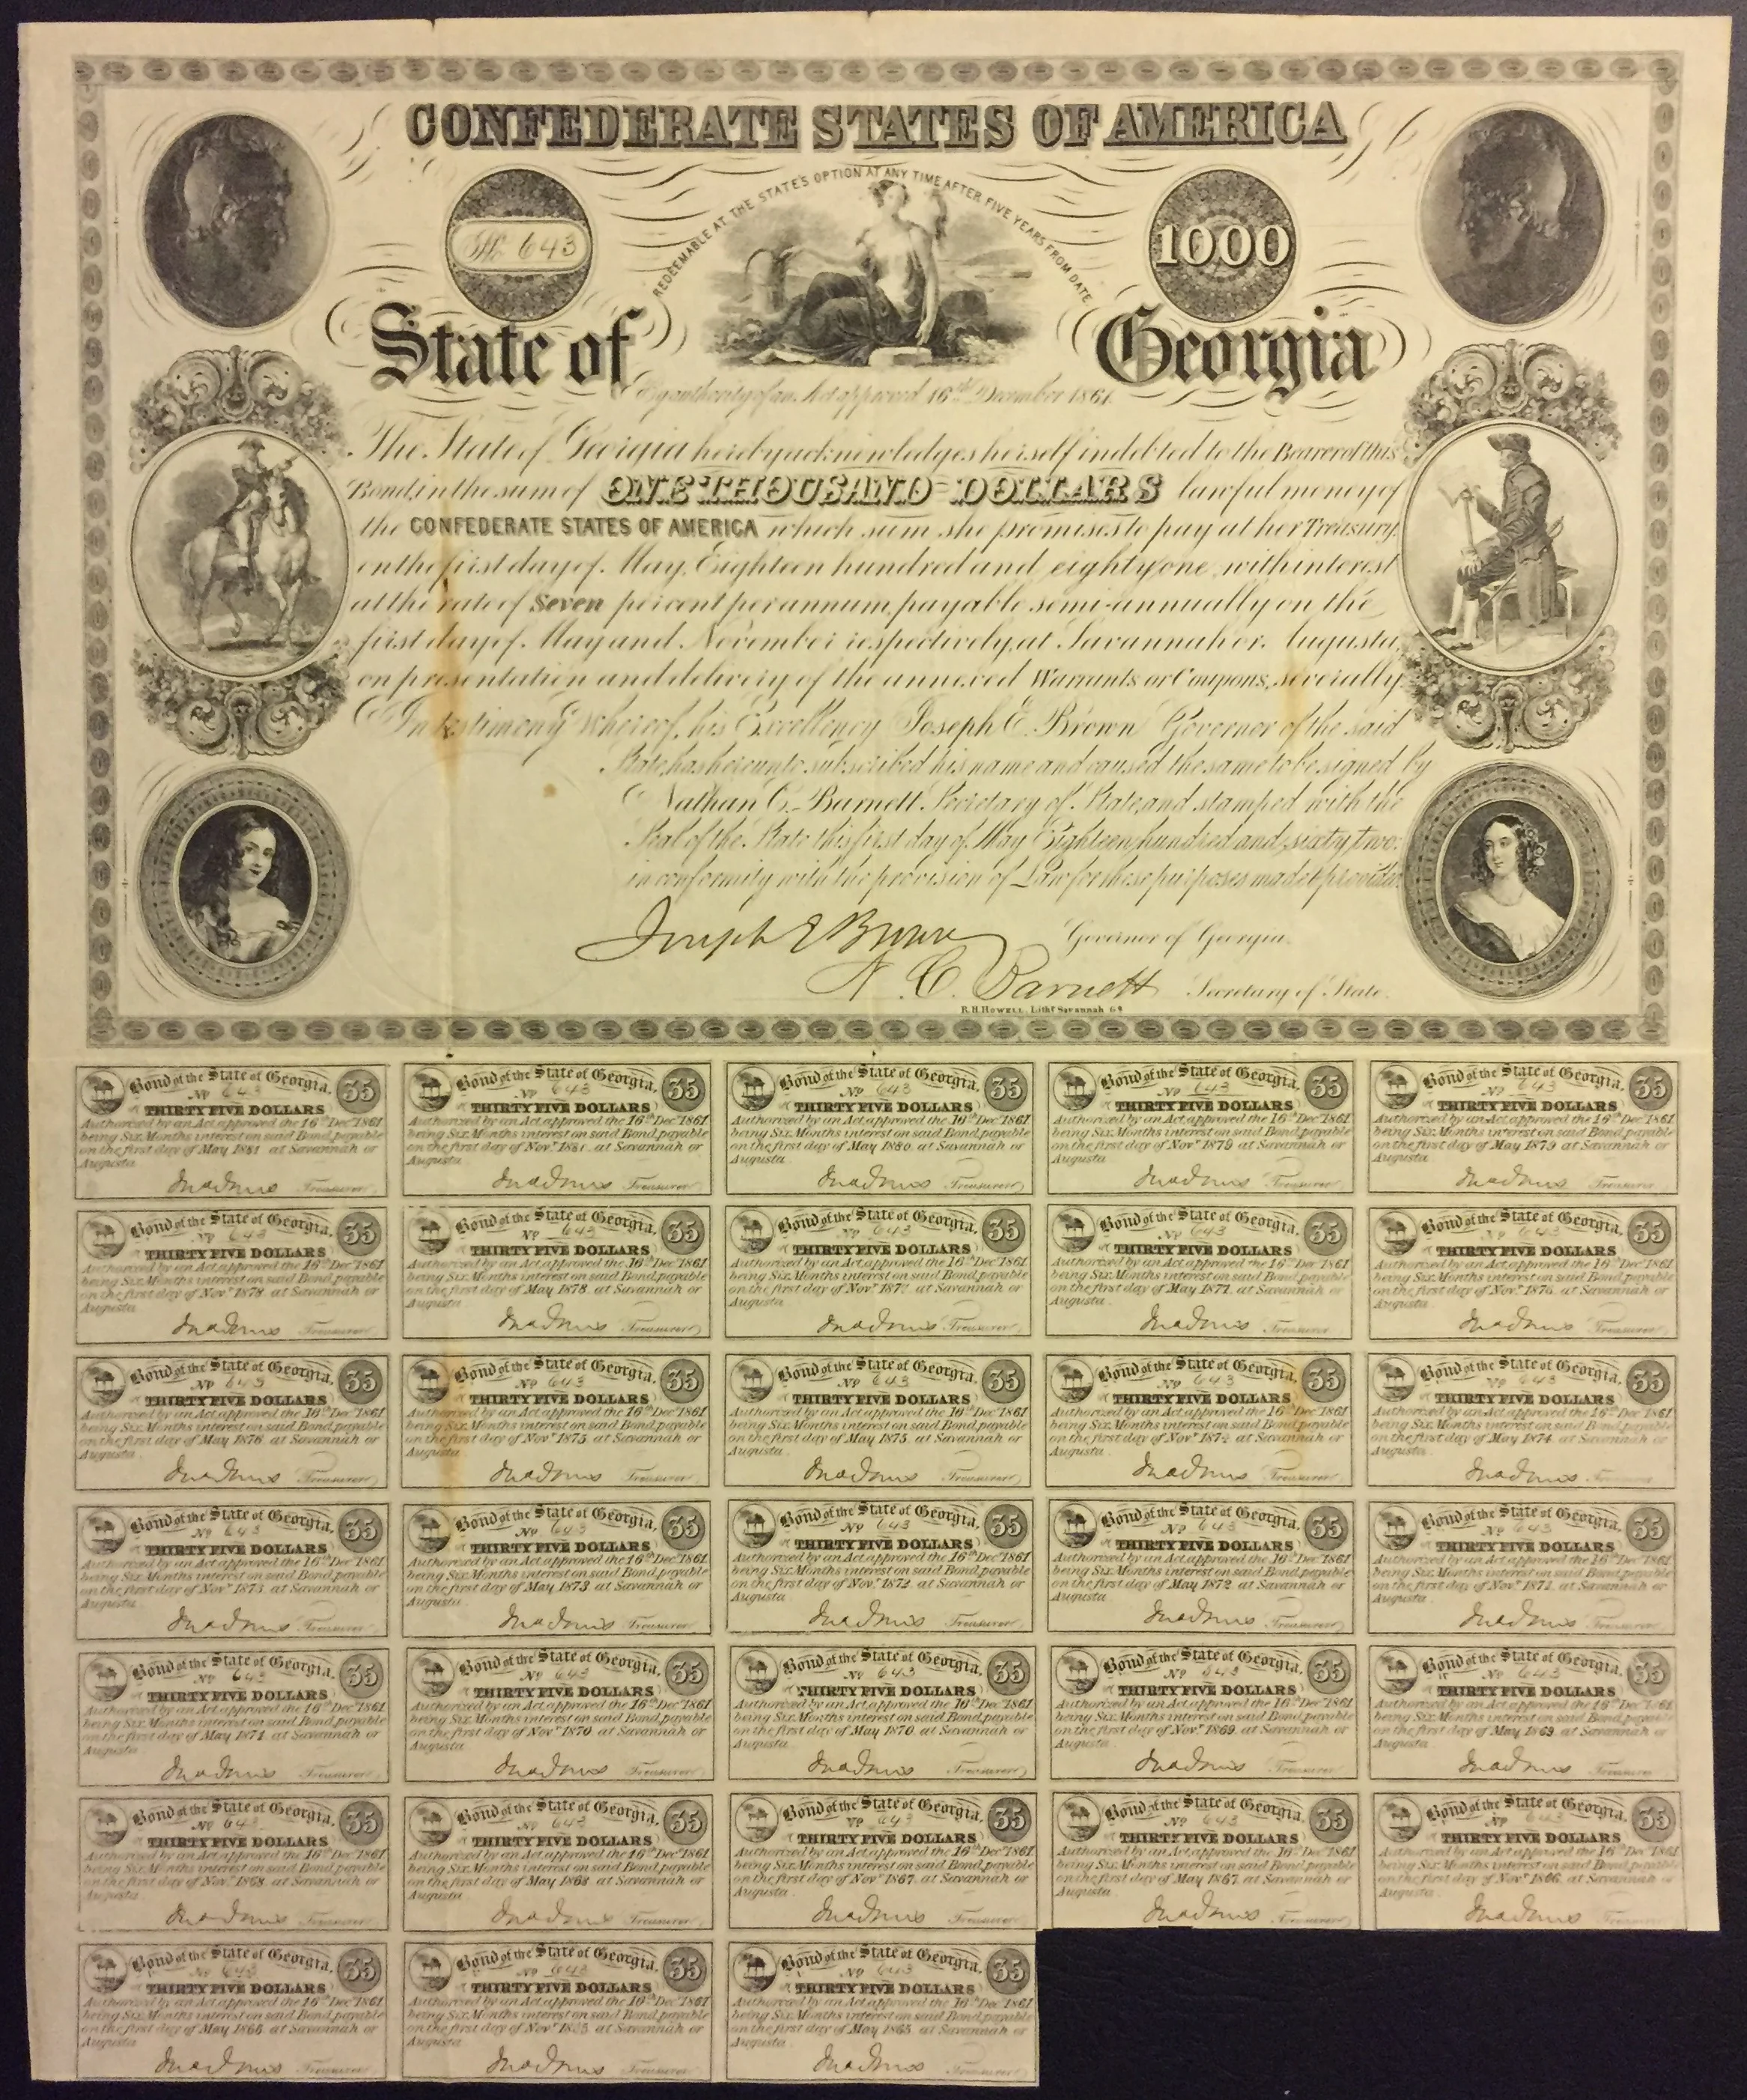 CONFEDERATE STATES OF AMERICA
REDEEMABLE AT THE STATE'S OPTION AT ANY TIME AFTER FIVE YEARS FROM DATE.
No 643
1000
State of Georgia
By authority of an Act approved 16th December 1861.
The State of Georgia hereby acknowledges herself indebted to the Bearer of this
Bond, in the sum of ONE THOUSAND DOLLARS lawful money of
the CONFEDERATE STATES OF AMERICA which sum she promises to pay at her Treasury,
on the first day of May, Eighteen hundred and eighty one, with interest
at the rate of Seven per cent per annum, payable semi-annually on the
first day of May and November respectively, at Savannah or Augusta,
on presentation and delivery of the annexed Warrants or Coupons, severally.
In testimony Whereof, his Excellency Joseph E. Brown Governor of the said
State, has hereunto subscribed his name and caused the same to be signed by
Nathan C. Barnett Secretary of State, and stamped with the
Seal of the State this first day of May Eighteen hundred and sixty two:
in conformity with the provision of Law for these purposes made & provided.
Joseph E Brown Governor of Georgia.
N. C. Barnett Secretary of State.
R.H. Howell, Lithr. Savannah Ga
Bond of the State of Georgia. 35
No 643
THIRTY FIVE DOLLARS
Authorized by an Act approved the 16th Dec 1861
being Six Months interest on said Bond, payable
on the first day of May 1881 at Savannah or
Augusta
Treasurer
Bond of the State of Georgia. 35
No 643
THIRTY FIVE DOLLARS
Authorized by an Act approved the 16th Dec 1861
being Six Months interest on said Bond, payable
on the first day of Novr 1881 at Savannah or
Augusta
Treasurer
Bond of the State of Georgia. 35
No 643
THIRTY FIVE DOLLARS
Authorized by an Act approved the 16th Dec 1861
being Six Months interest on said Bond, payable
on the first day of May 1880 at Savannah or
Augusta
Treasurer
Bond of the State of Georgia. 35
No 643
THIRTY FIVE DOLLARS
Authorized by an Act approved the 16th Dec 1861
being Six Months interest on said Bond, payable
on the first day of Novr 1879 at Savannah or
Augusta
Treasurer
Bond of the State of Georgia. 35
No 643
THIRTY FIVE DOLLARS
Authorized by an Act approved the 16th Dec 1861
being Six Months interest on said Bond, payable
on the first day of May 1879 at Savannah or
Augusta
Treasurer
Bond of the State of Georgia. 35
No 643
THIRTY FIVE DOLLARS
Authorized by an Act approved the 16th Dec 1861
being Six Months interest on said Bond, payable
on the first day of Novr 1878 at Savannah or
Augusta
Treasurer
Bond of the State of Georgia. 35
No 643
THIRTY FIVE DOLLARS
Authorized by an Act approved the 16th Dec 1861
being Six Months interest on said Bond, payable
on the first day of May 1878 at Savannah or
Augusta
Treasurer
Bond of the State of Georgia. 35
No 643
THIRTY FIVE DOLLARS
Authorized by an Act approved the 16th Dec 1861
being Six Months interest on said Bond, payable
on the first day of Novr 1877 at Savannah or
Augusta
Treasurer
Bond of the State of Georgia. 35
No 643
THIRTY FIVE DOLLARS
Authorized by an Act approved the 16th Dec 1861
being Six Months interest on said Bond, payable
on the first day of May 1877 at Savannah or
Augusta
Treasurer
Bond of the State of Georgia. 35
No 643
THIRTY FIVE DOLLARS
Authorized by an Act approved the 16th Dec 1861
being Six Months interest on said Bond, payable
on the first day of Novr 1876 at Savannah or
Augusta
Treasurer
Bond of the State of Georgia. 35
No 643
THIRTY FIVE DOLLARS
Authorized by an Act approved the 16th Dec 1861
being Six Months interest on said Bond, payable
on the first day of May 1876 at Savannah or
Augusta
Treasurer
Bond of the State of Georgia. 35
No 643
THIRTY FIVE DOLLARS
Authorized by an Act approved the 16th Dec 1861
being Six Months interest on said Bond, payable
on the first day of Novr 1875 at Savannah or
Augusta
Treasurer
Bond of the State of Georgia. 35
No 643
THIRTY FIVE DOLLARS
Authorized by an Act approved the 16th Dec 1861
being Six Months interest on said Bond, payable
on the first day of May 1875 at Savannah or
Augusta
Treasurer
Bond of the State of Georgia. 35
No 643
THIRTY FIVE DOLLARS
Authorized by an Act approved the 16th Dec 1861
being Six Months interest on said Bond, payable
on the first day of Novr 1874 at Savannah or
Augusta
Treasurer
Bond of the State of Georgia. 35
No 643
THIRTY FIVE DOLLARS
Authorized by an Act approved the 16th Dec 1861
being Six Months interest on said Bond, payable
on the first day of May 1874 at Savannah or
Augusta
Treasurer
Bond of the State of Georgia. 35
No 643
THIRTY FIVE DOLLARS
Authorized by an Act approved the 16th Dec 1861
being Six Months interest on said Bond, payable
on the first day of Novr 1873 at Savannah or
Augusta
Treasurer
Bond of the State of Georgia. 35
No 643
THIRTY FIVE DOLLARS
Authorized by an Act approved the 16th Dec 1861
being Six Months interest on said Bond, payable
on the first day of May 1873 at Savannah or
Augusta
Treasurer
Bond of the State of Georgia. 35
No 643
THIRTY FIVE DOLLARS
Authorized by an Act approved the 16th Dec 1861
being Six Months interest on said Bond, payable
on the first day of Novr 1872 at Savannah or
Augusta
Treasurer
Bond of the State of Georgia. 35
No 643
THIRTY FIVE DOLLARS
Authorized by an Act approved the 16th Dec 1861
being Six Months interest on said Bond, payable
on the first day of May 1872 at Savannah or
Augusta
Treasurer
Bond of the State of Georgia. 35
No 643
THIRTY FIVE DOLLARS
Authorized by an Act approved the 16th Dec 1861
being Six Months interest on said Bond, payable
on the first day of Novr 1871 at Savannah or
Augusta
Treasurer
Bond of the State of Georgia. 35
No 643
THIRTY FIVE DOLLARS
Authorized by an Act approved the 16th Dec 1861
being Six Months interest on said Bond, payable
on the first day of May 1871 at Savannah or
Augusta
Treasurer
Bond of the State of Georgia. 35
No 643
THIRTY FIVE DOLLARS
Authorized by an Act approved the 16th Dec 1861
being Six Months interest on said Bond, payable
on the first day of Novr 1870 at Savannah or
Augusta
Treasurer
Bond of the State of Georgia. 35
No 643
THIRTY FIVE DOLLARS
Authorized by an Act approved the 16th Dec 1861
being Six Months interest on said Bond, payable
on the first day of May 1870 at Savannah or
Augusta
Treasurer
Bond of the State of Georgia. 35
No 643
THIRTY FIVE DOLLARS
Authorized by an Act approved the 16th Dec 1861
being Six Months interest on said Bond, payable
on the first day of Novr 1869 at Savannah or
Augusta
Treasurer
Bond of the State of Georgia. 35
No 643
THIRTY FIVE DOLLARS
Authorized by an Act approved the 16th Dec 1861
being Six Months interest on said Bond, payable
on the first day of May 1869 at Savannah or
Augusta
Treasurer
Bond of the State of Georgia. 35
No 643
THIRTY FIVE DOLLARS
Authorized by an Act approved the 16th Dec 1861
being Six Months interest on said Bond, payable
on the first day of Novr 1868 at Savannah or
Augusta
Treasurer
Bond of the State of Georgia. 35
No 643
THIRTY FIVE DOLLARS
Authorized by an Act approved the 16th Dec 1861
being Six Months interest on said Bond, payable
on the first day of May 1868 at Savannah or
Augusta
Treasurer
Bond of the State of Georgia. 35
No 643
THIRTY FIVE DOLLARS
Authorized by an Act approved the 16th Dec 1861
being Six Months interest on said Bond, payable
on the first day of Novr 1867 at Savannah or
Augusta
Treasurer
Bond of the State of Georgia. 35
No 643
THIRTY FIVE DOLLARS
Authorized by an Act approved the 16th Dec 1861
being Six Months interest on said Bond, payable
on the first day of May 1867 at Savannah or
Augusta
Treasurer
Bond of the State of Georgia. 35
No 643
THIRTY FIVE DOLLARS
Authorized by an Act approved the 16th Dec 1861
being Six Months interest on said Bond, payable
on the first day of Novr 1866 at Savannah or
Augusta
Treasurer
Bond of the State of Georgia. 35
No 643
THIRTY FIVE DOLLARS
Authorized by an Act approved the 16th Dec 1861
being Six Months interest on said Bond, payable
on the first day of May 1866 at Savannah or
Augusta
Treasurer
Bond of the State of Georgia. 35
No 643
THIRTY FIVE DOLLARS
Authorized by an Act approved the 16th Dec 1861
being Six Months interest on said Bond, payable
on the first day of Novr 1865 at Savannah or
Augusta
Treasurer
Bond of the State of Georgia. 35
No 643
THIRTY FIVE DOLLARS
Authorized by an Act approved the 16th Dec 1861
being Six Months interest on said Bond, payable
on the first day of May 1865 at Savannah or
Augusta
Treasurer